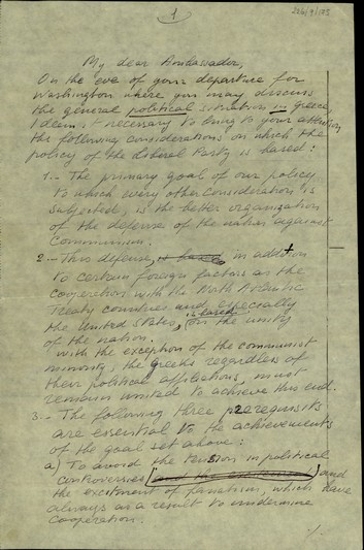 1
My dear Ambassador,
On the eve of your departure for
Washington where you may discuss
the general political situation in Greece
I deem it necessary to bring to your attention
the following considerations on which the
policy of the Liberal Party is based:
1.- The primary goal of our policy
to which every other consideration is
subjected, is the better organization
of the defense of the nation against
Communism.
2.- This defense, is based in addition
to certain foreign factors as the
cooperation with the North Atlantic
Treaty countries and especially
the United States, is based on the unity
of the nation.
With the exception of the communist
minority, the Greeks regardless of
their political affiliations, must
remain united to achieve this end.
3.- The following three prerequisits
are essential to the achievements
of the goal set above:
a) To avoid the tension in political
controversies and the and
the excitment of fanatism, which have
always as a result to undermine
cooperation.
./.